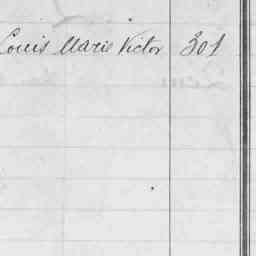 Louis Marie Victor 301